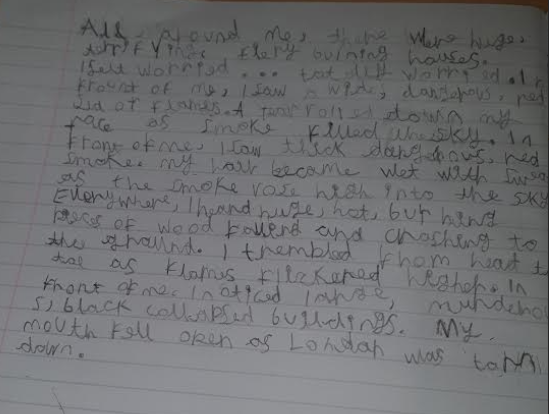 All around me, there were huge,
terrifying fiery burning houses.
I felt worried... totally worried. In
front of me, I saw a wide, dangerous, red
of flames. A tear rolled down my
face as smoke filled the sky. In
front of me, I saw thick dangerous, red
smoke. my hair became wet with
as the smoke rose high into the sky
Everywhere, I heard huge, hot, burning
pieces of wood and crashing to
the ground. I trembled from head t
toe as flames flickered higher. In
front of me, I noticed large,
s, black collapsed buildings. My
mouth fell open as London was
down.